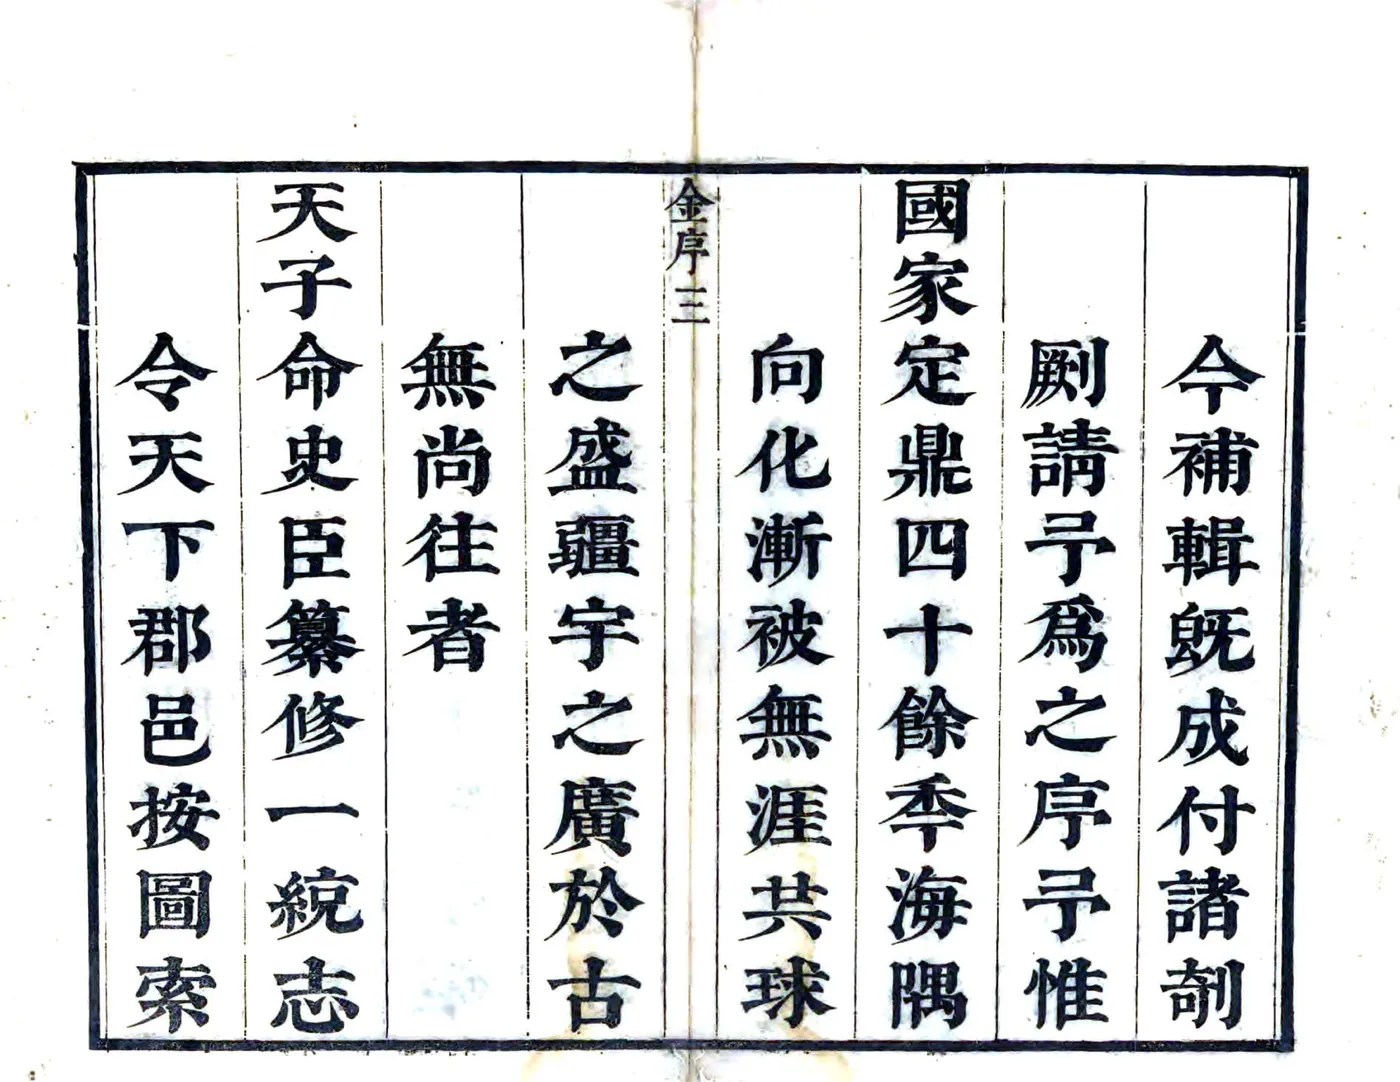 今補輯旣成付諸剞
劂請予爲之序予惟
國家定鼎四十餘秊海隅
向化漸被無涯共球
金序三
之盛疆宇之廣於古
無尚往者
天子命史臣纂修一統志
令天下郡邑按圖索